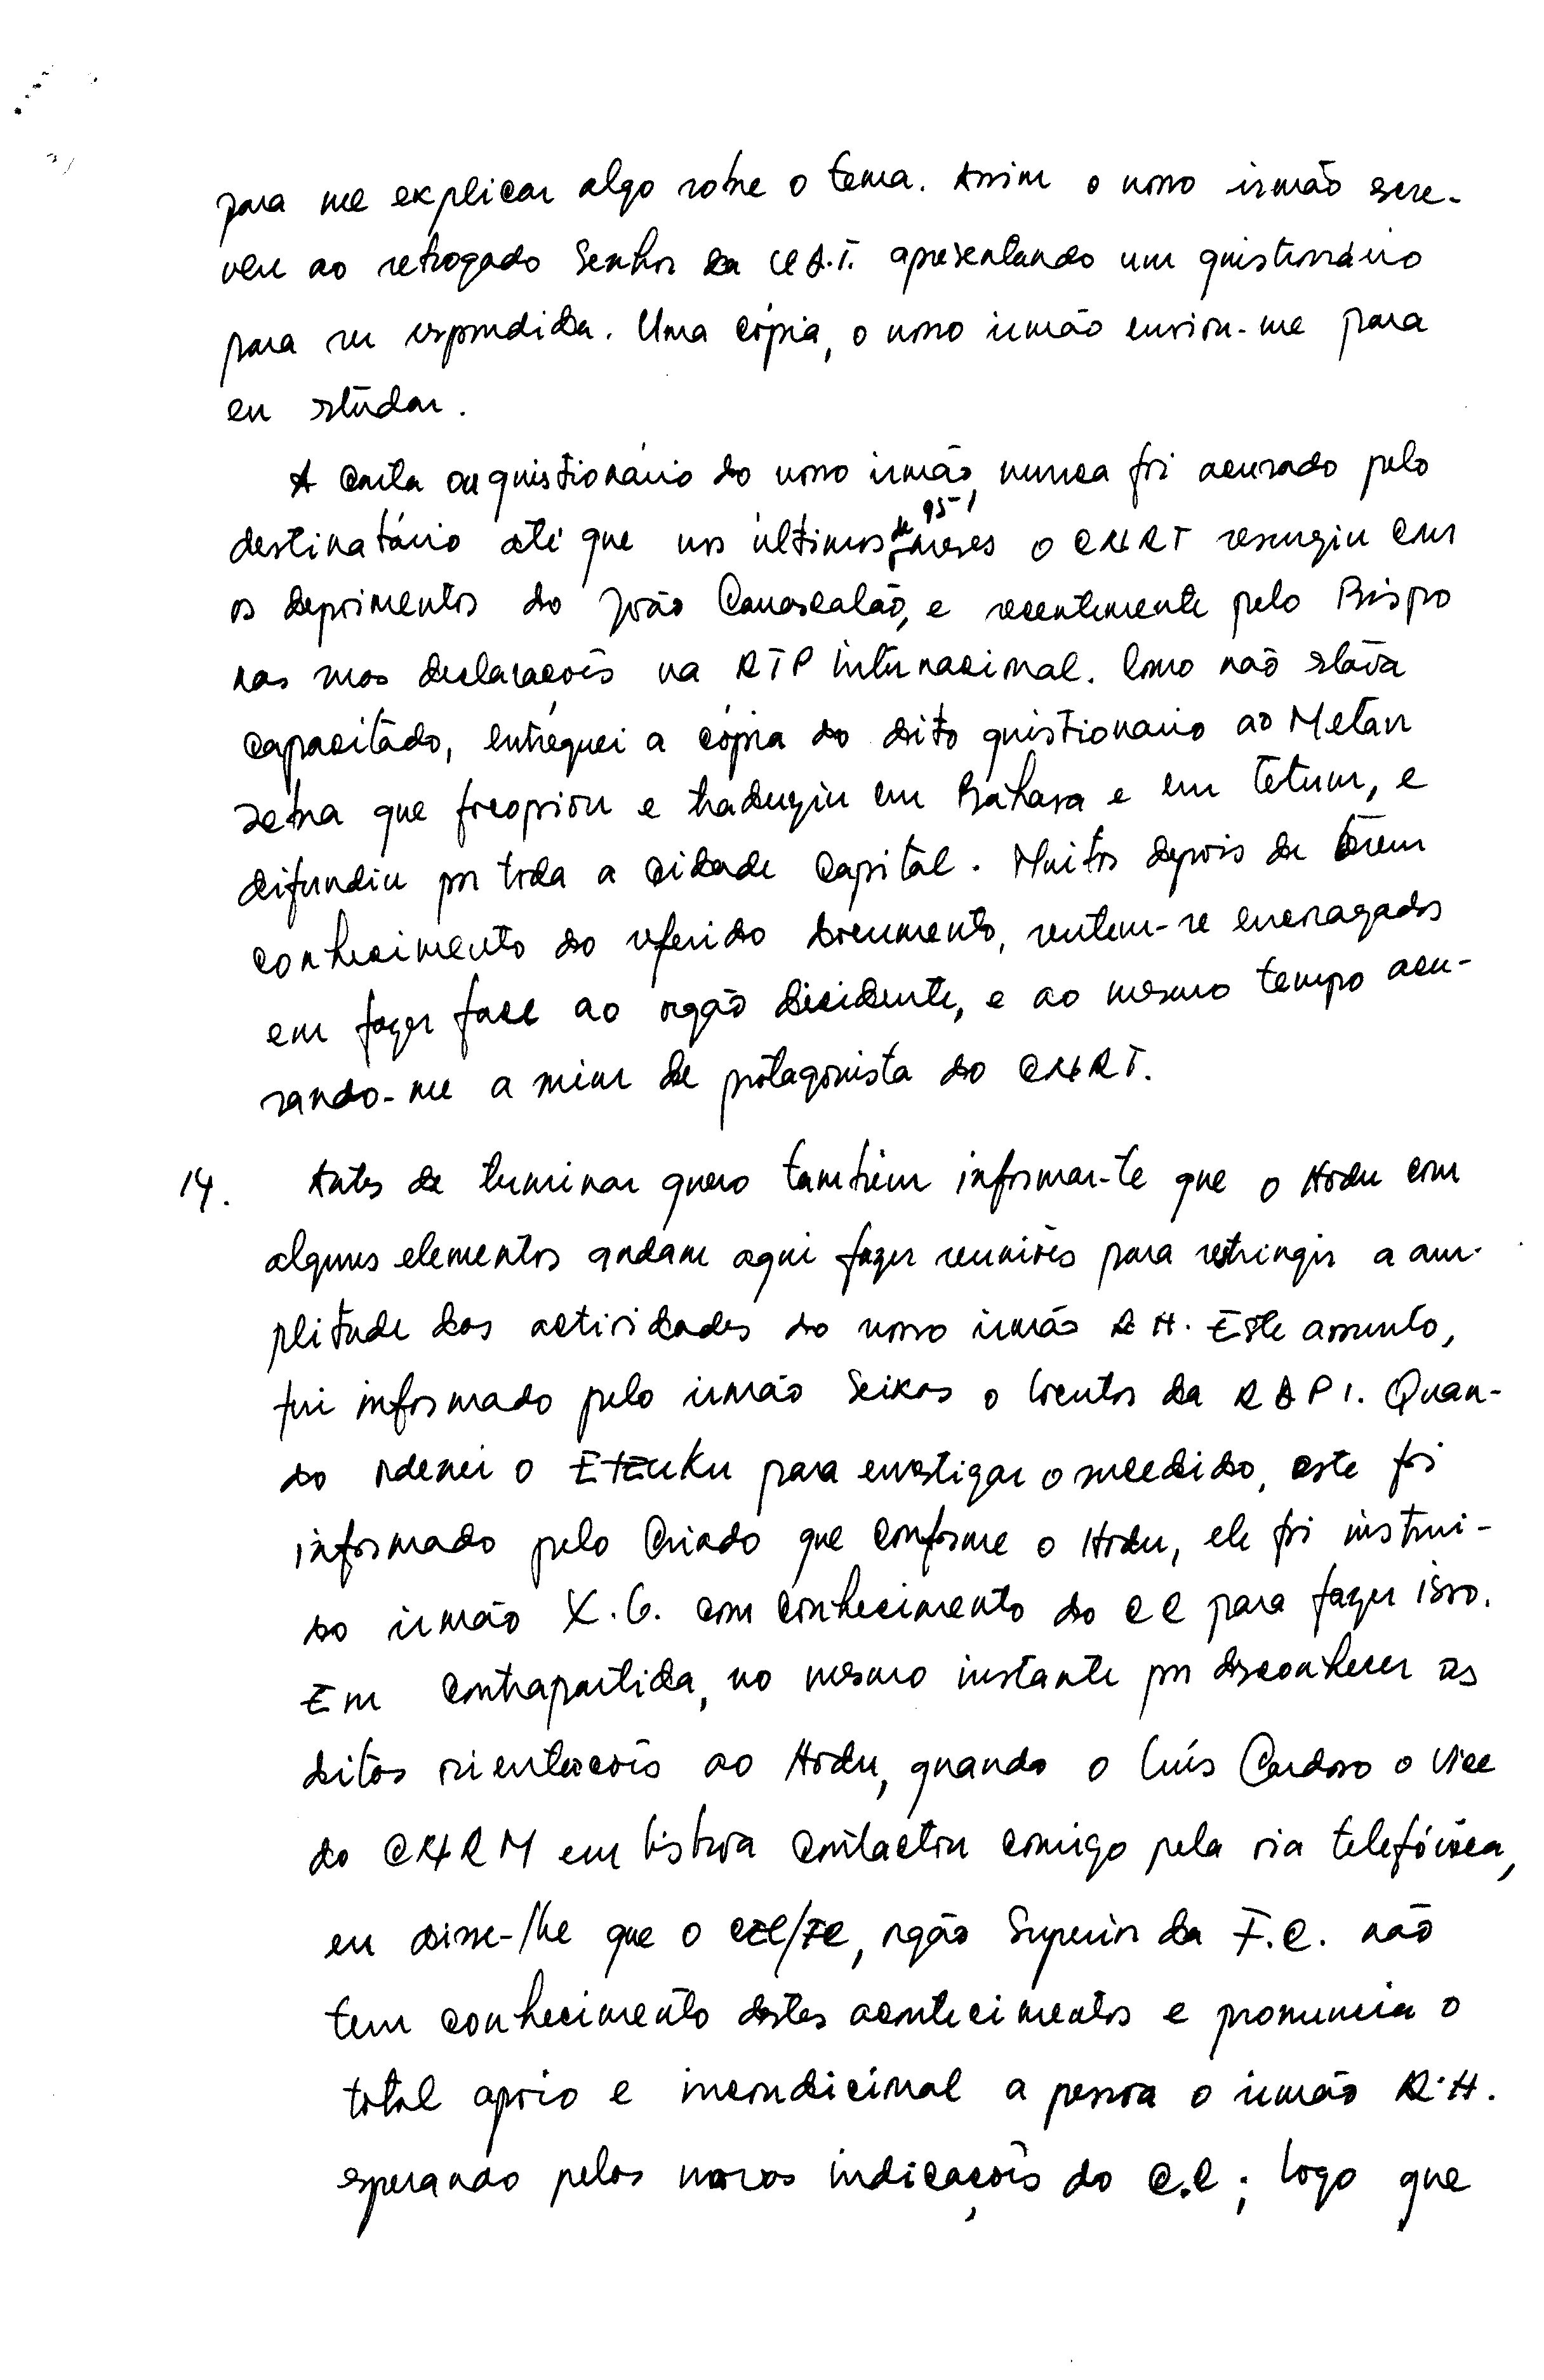 para me explicar algo sobre o tema. Assim o nosso irmão escre-
veu ao retrogado Senhor da apresentando um questionário
para ser respondida. Uma cópia, o nosso irmão enviou-me para
eu estudar.
A Carta ou questionário do nosso irmão, nunca foi acusado pelo
destinatário até que nos últimos meses de 95 o CNRT resurgiu com
os depoimentos do João Carrascalão, e recentemente pelo Bispo
nas suas declarações na RTP Internacional. Como não estava
capacitado, entreguei a cópia do dito questionario ao Metan
que focopiou e traduziu em Bahasa e em Tetum, e
difundiu por toda a Cidade Capital. Muitos depois de terem
conhecimento do referido documento, sentem-se encoragados
em fazer face ao orgão decidente, e ao mesmo tempo acu-
sando-me a mim de protagonista do CNRT.
14. Antes de terminar quero também informar-te que o Hodu com
alguns elementos andam aqui fazer reuniões para restringir a am-
plitude das actividades do nosso irmão R.H. Este assunto,
fui informado pelo irmão Seixas o da Quan-
do ordenei o para envestigar o sucedido, este foi
informado pelo Criado que conforme o Hodu, ele foi instrui-
do irmão X.G. com conhecimento do CC para fazer isso.
Em contrapartida, no mesmo instante por desconhecer as
ditas orientações ao Hodu, quando o Luís Cardoso o Vice
do CNRM em Lisboa contactou comigo pela via telefónica,
eu disse-lhe que o CE/FC, orgão Superior da F.C. não
tem conhecimento destes acontecimentos e pronuncia o
total apoio e incondicional a pessoa o irmão R.H.
esperando pelas novas indicações do C.C; logo que